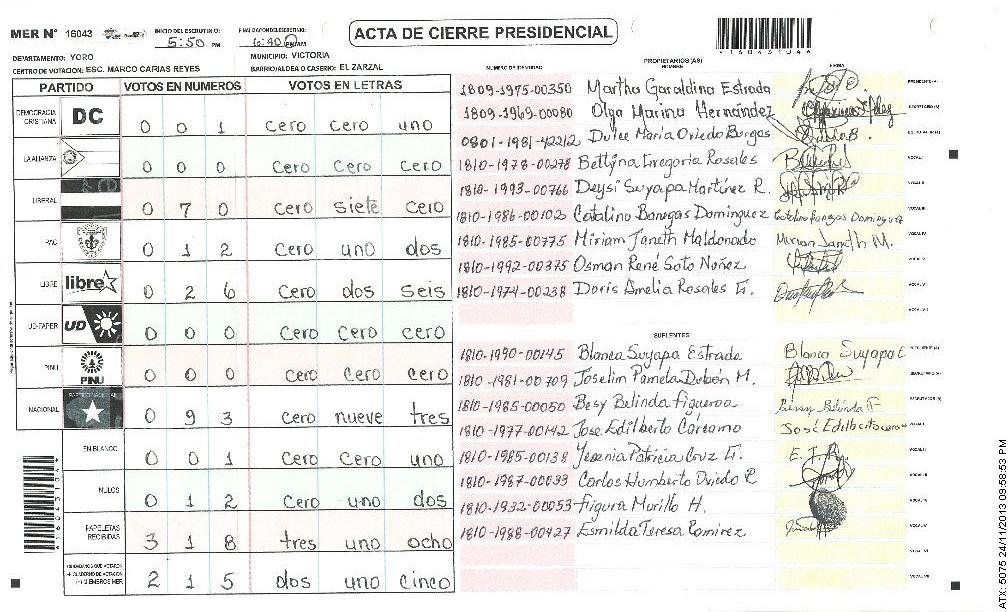 MER N° 16043
INICIO DEL ESCRUTINIO: 5:50 PM
6:40 PM
ACTA DE CIERRE PRESIDENCIAL
DEPARTAMENTO: YORO
MUNICIPIO: VICTORIA
CENTRO DE VOTACION: ESC. MARCO CARIAS REYES
BARRIO/ALDEA O CASERIO: EL ZARZAL
PARTIDO VOTOS EN NUMEROS VOTOS EN LETRAS
DEMOCRACIA CRISTIANA DC 0 0 1 cero cero uno
LA ALIANZA 0 0 0 cero cero cero
LIBERAL 0 7 0 cero siete cero
PAC 0 1 2 cero uno dos
LIBRE libre 0 2 6 cero dos seis
UD-FAPER UD 0 0 0 cero cero cero
PINU PINU 0 0 0 cero cero cero
NACIONAL 0 9 3 cero nueve tres
EN BLANCO 0 0 1 cero cero uno
NULOS 0 1 2 cero uno dos
PAPELETAS RECIBIDAS 3 1 8 tres uno ocho
2 1 5 dos uno cinco
NUMERO DE IDENTIDAD PROPIETARIOS (AS) NOMBRE FIRMA
1809-1975-00350 Martha Garaldina Estrada
1809-1969-00080 Olga Marina Hernández
0801-1981-42212 Dulce Maria Oviedo Borgas
1810-1978-00278 Bettyina Gregoria Rosales
1810-1993-00766 Deysi Suyapa Martínez R.
1810-1986-00102 Catalino Banegas Dominguez Catalino Banegas Dominguez
1810-1985-00775 Miriam Janeth Maldonado Miriam Janeth M.
1810-1992-00375 Osman René Soto Nuñez
1810-1974-00238 Doris Amelia Rosales G.
SUPLENTES
1810-1990-00145 Blanca Suyapa Estrada Blanca Suyapa E.
1810-1981-00709 Joselim Pamela Dubón M.
1810-1985-00050 Besy Belinda figueroa Bessy Belinda F.
1810-1977-00142 Jose Edilberto Cárcamo José Edilberto
1810-1985-00138 Yesenia Patricia Cruz G.
1810-1987-00033 Carlos Humberto Oviedo R
1810-1932-00053 figura Murillo H.
1810-1988-00427 Esmilda Teresa Ramirez
ATX: 5075 24/11/2013 09:58:53 PM